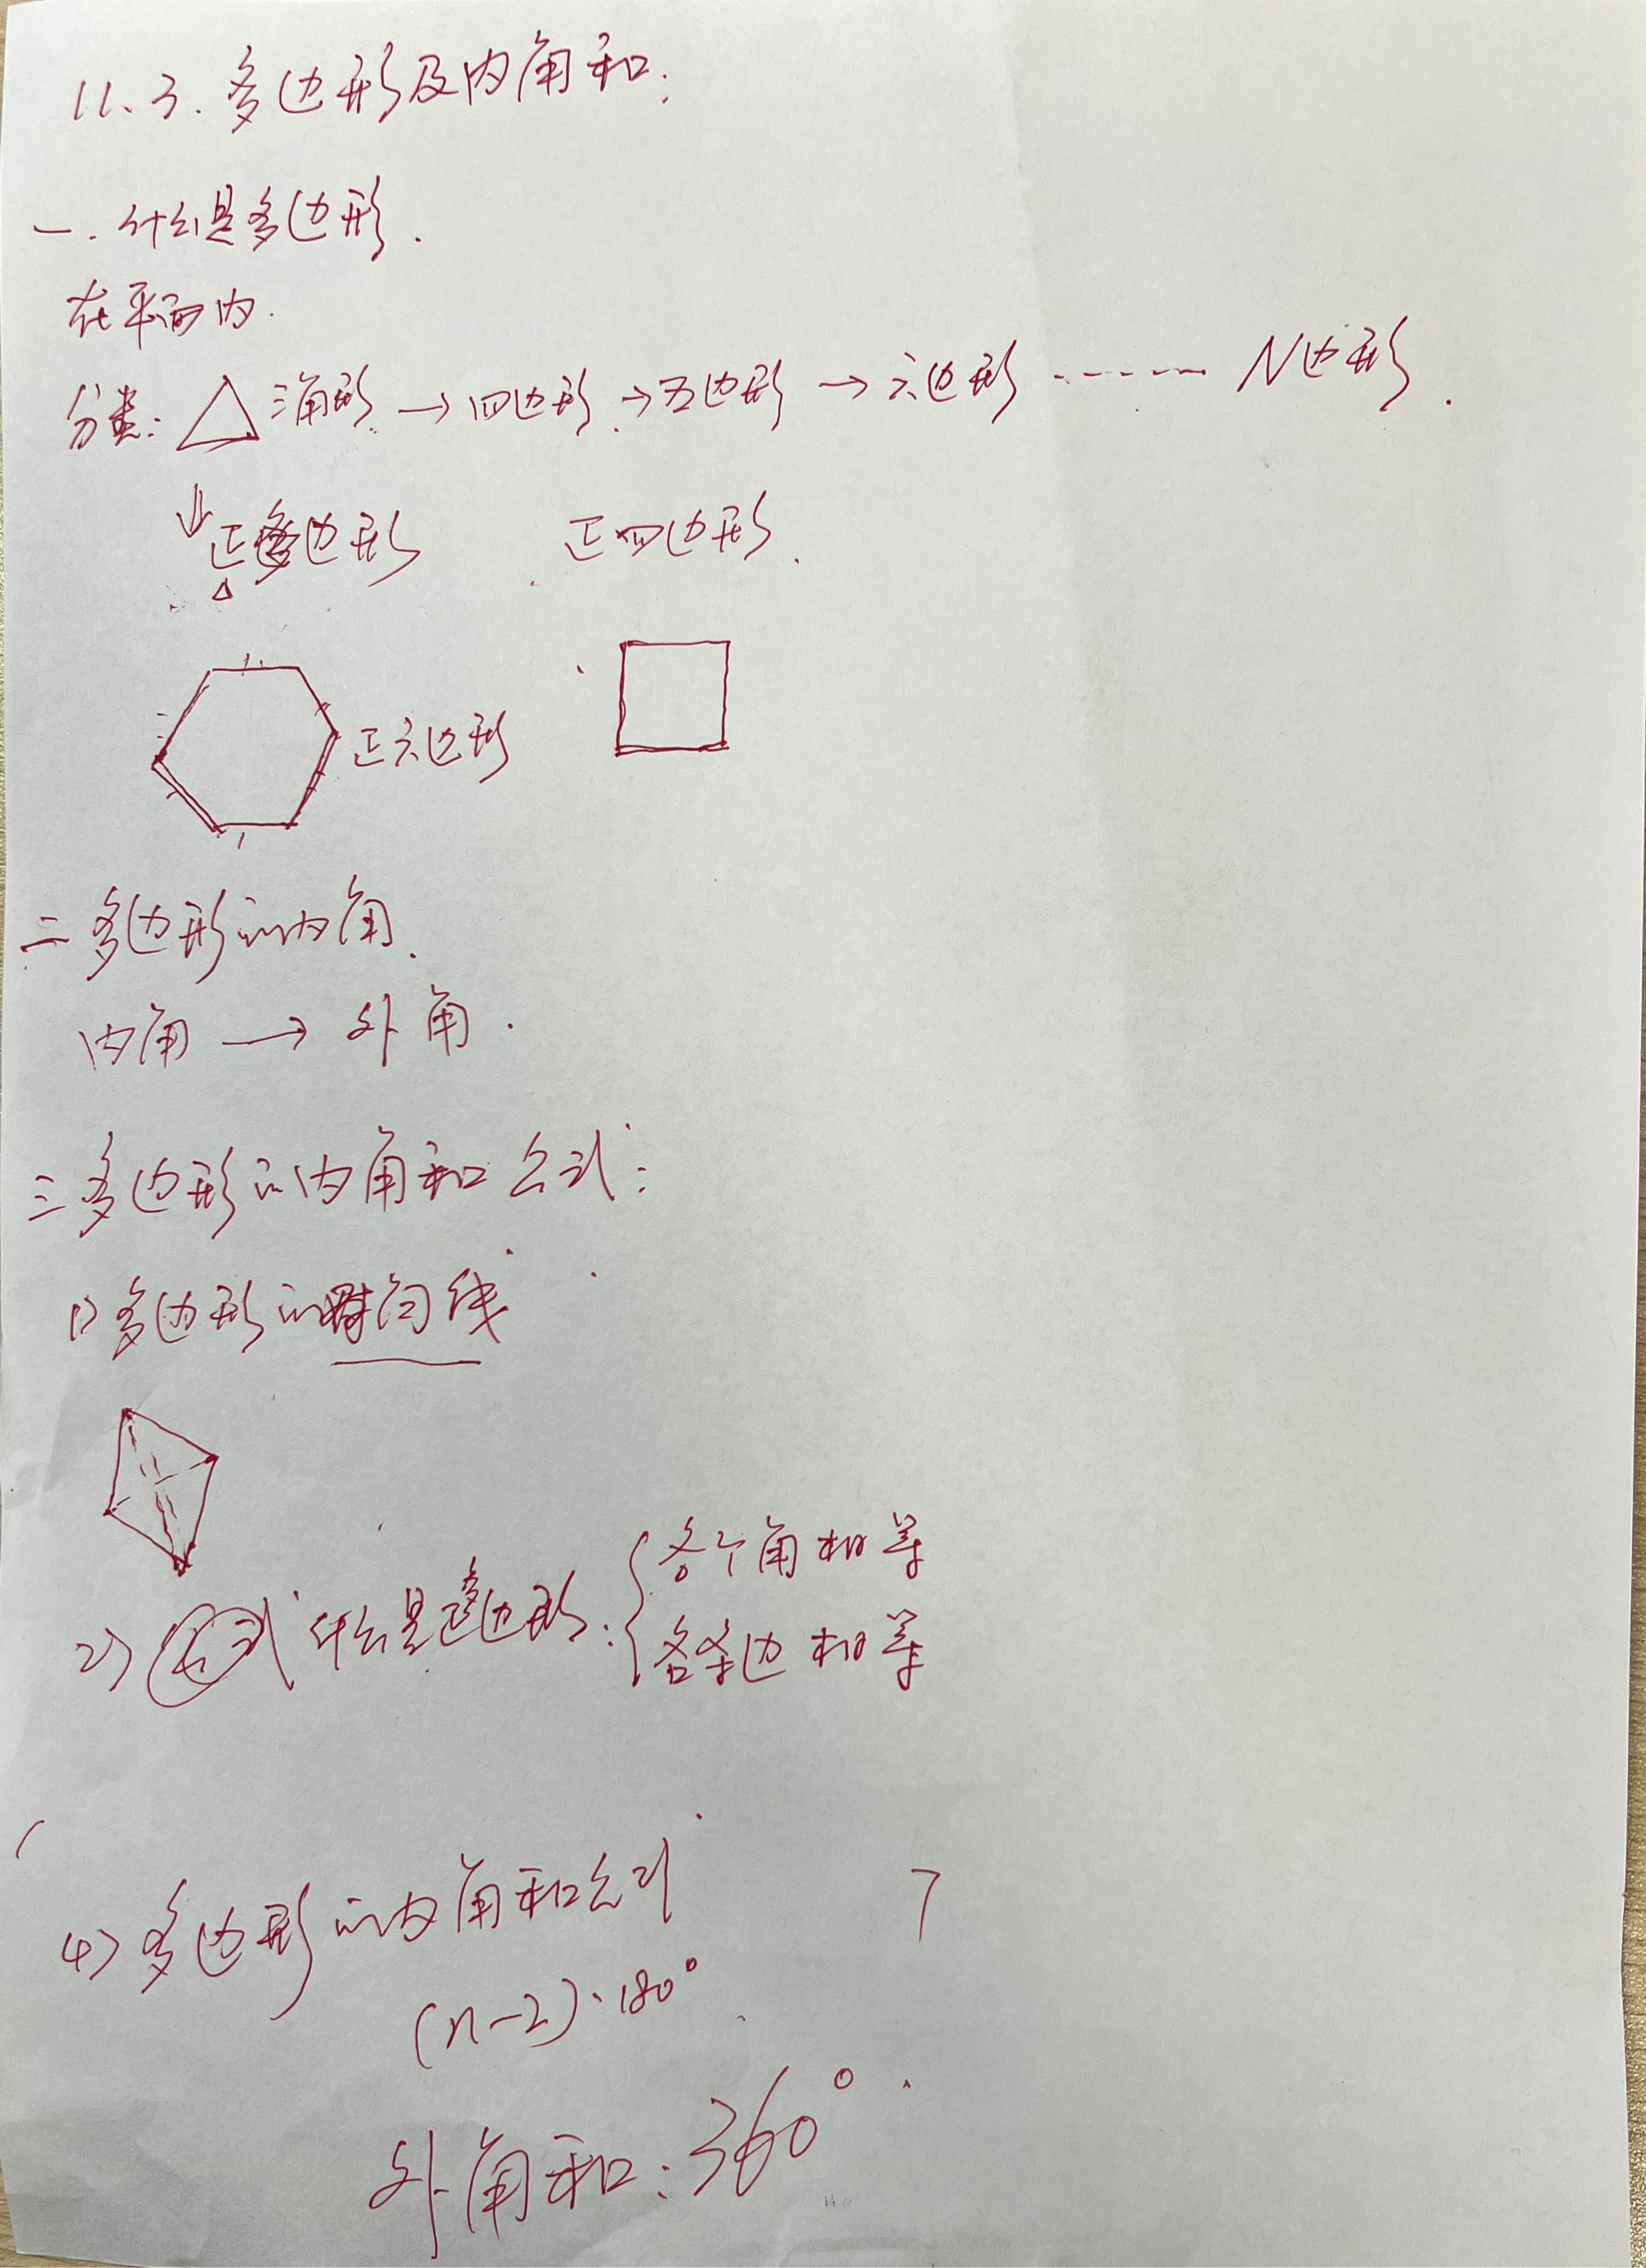 11、3. 多边形及内角和：
一. 什么是多边形.
在平面内.
分类: 三角形 → 四边形 → 五边形 → 六边形 ------ N边形.
正多边形 正四边形.
正六边形
二 多边形的内角.
内角 → 外角.
三 多边形的内角和公式:
1) 多边形的对角线
2) 什么是正多边形: { 各个角相等
各条边相等
4) 多边形的内角和公式
(n-2)·180°.
外角和: 360°.